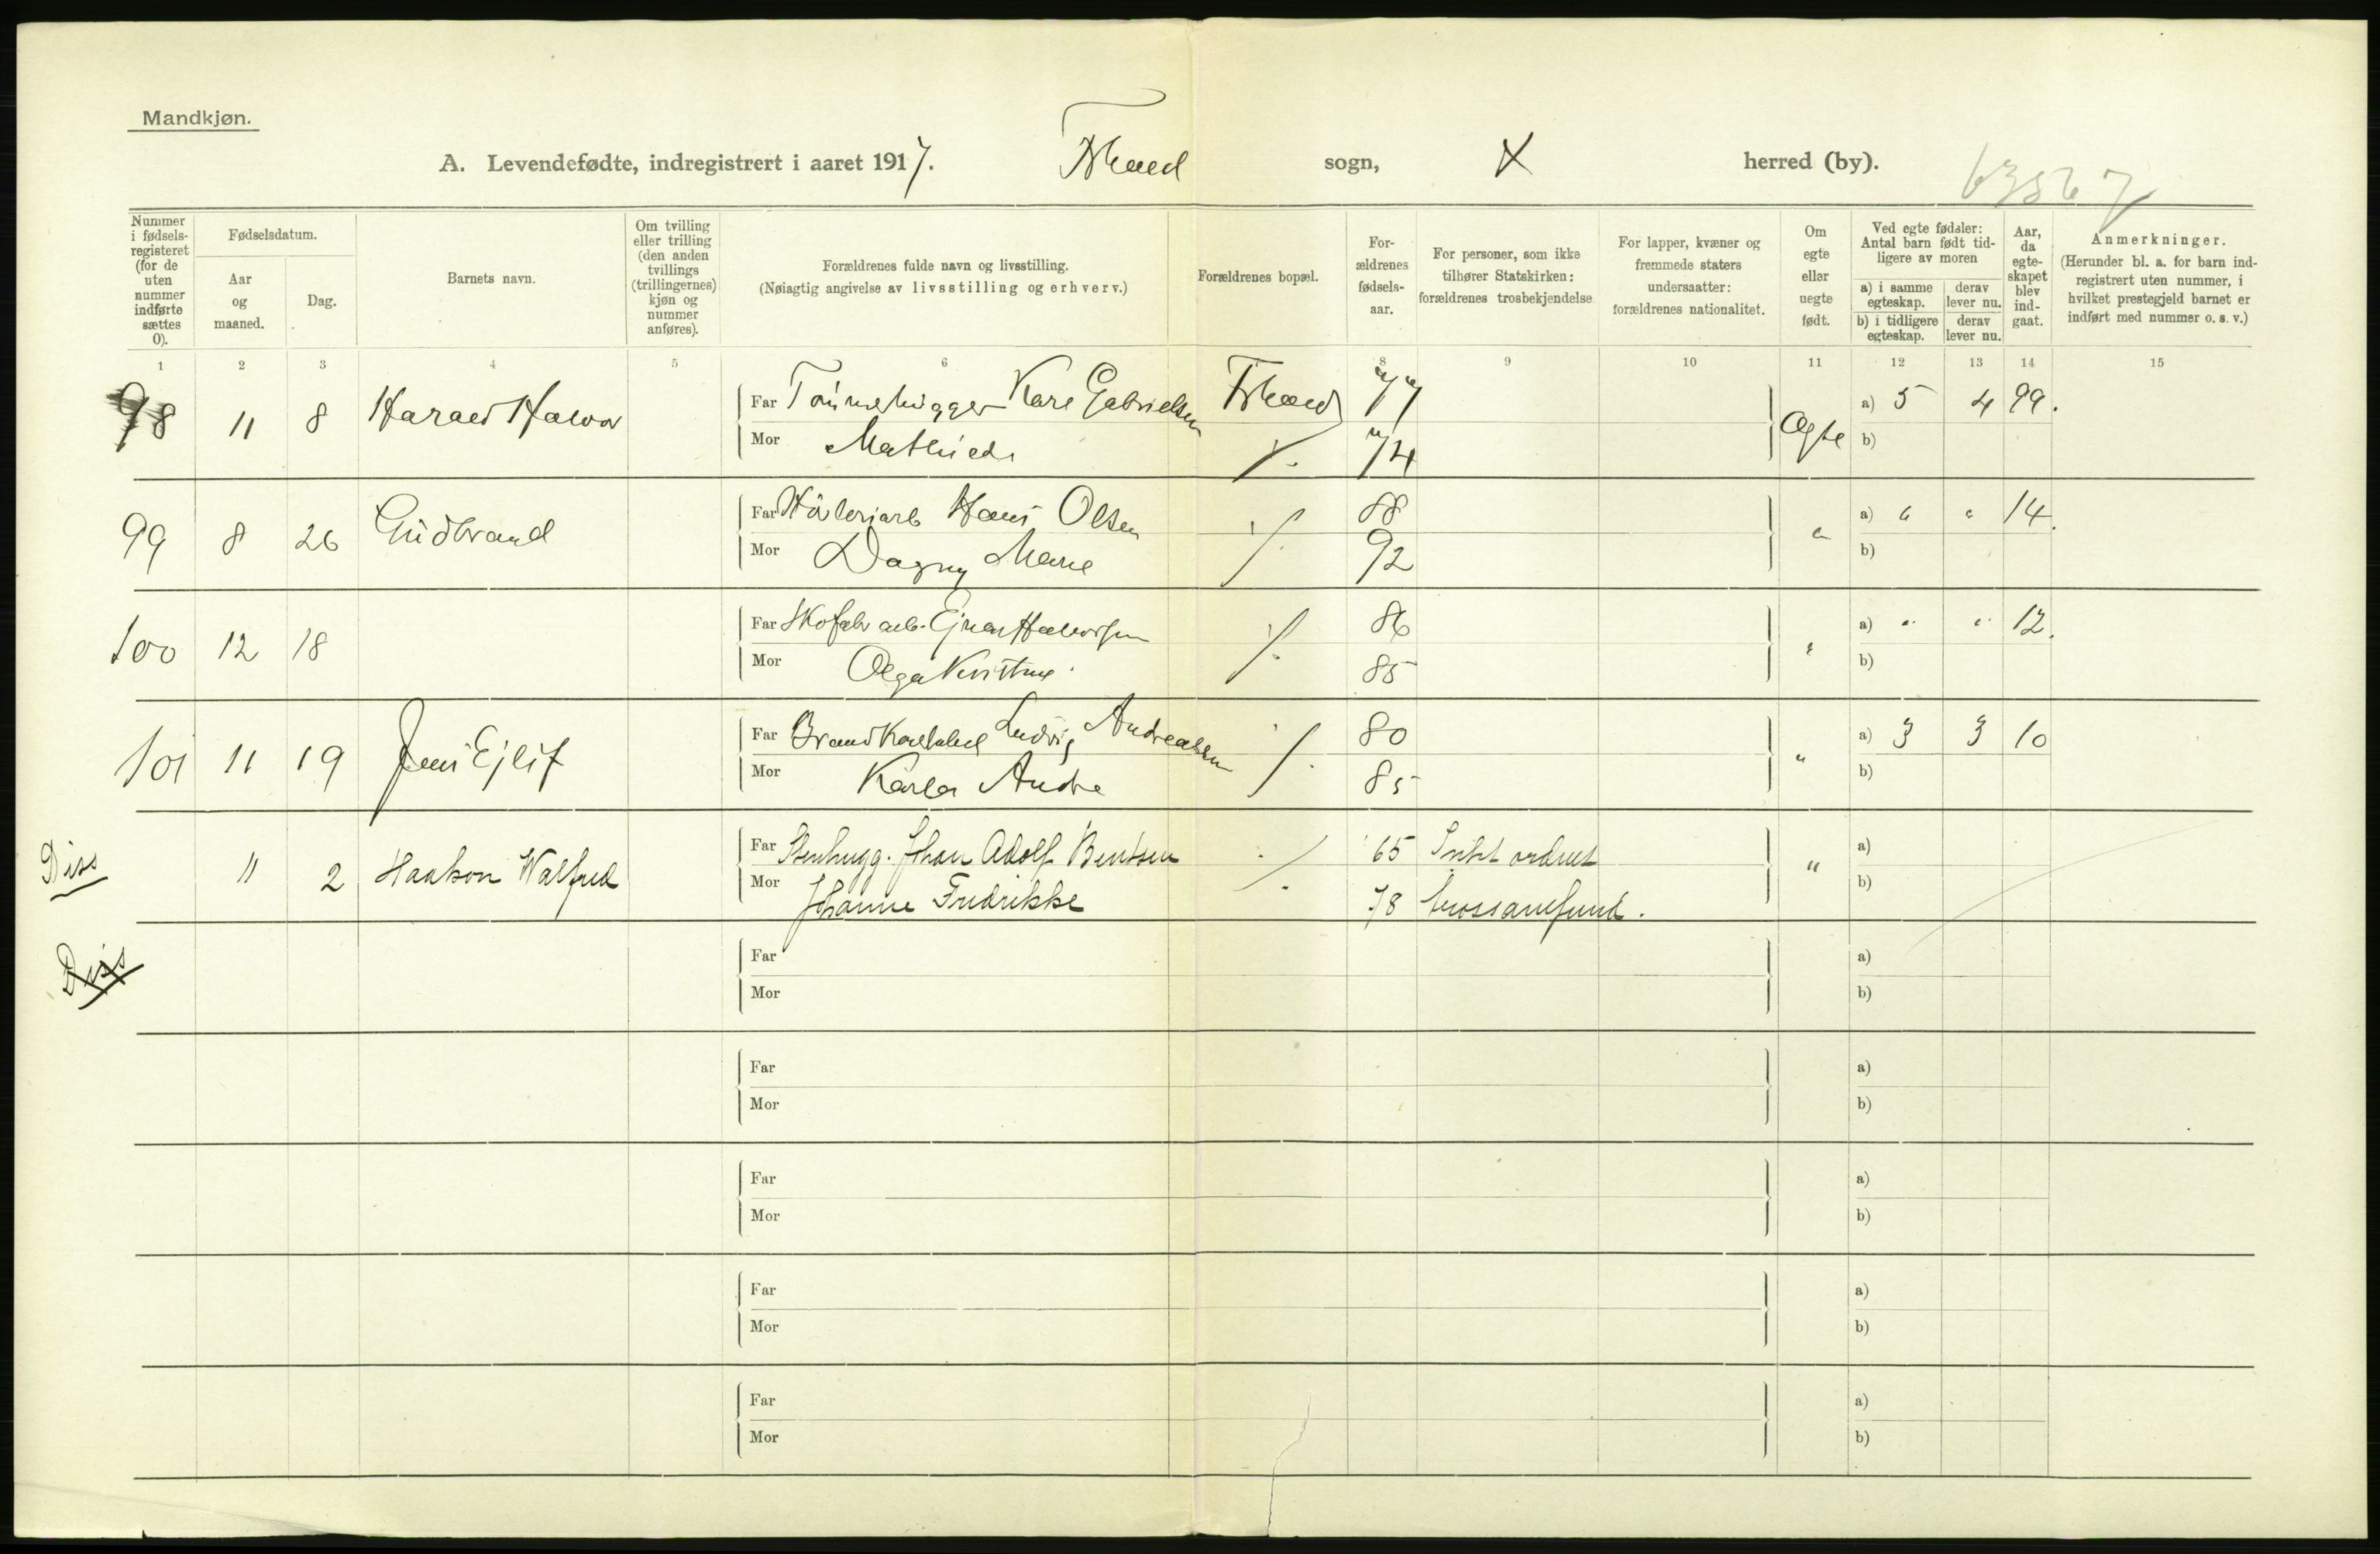 Mandkjøn.
A. Levendefødte, indregistrert i aaret 1917. F.hald sogn, X herred (by).
Nummer i fødsels-registeret (for de uten nummer indførte sættes 0).
Fødselsdatum.
Aar og maaned.
Dag.
Barnets navn.
Om tvilling eller trilling (den anden tvillings (trillingernes) kjøn og nummer anføres).
Forældrenes fulde navn og livsstilling.
(Nøiagtig angivelse av livsstilling og erhverv.)
Forældrenes bopæl.
For-ældrenes fødsels-aar.
For personer, som ikke tilhører Statskirken: forældrenes trosbekjendelse
For lapper, kvæner og fremmede staters undersaatter: forældrenes nationalitet.
Om egte eller uegte født.
Ved egte fødsler: Antal barn født tid-ligere av moren
a) i samme egteskap.
derav lever nu.
b) i tidligere egteskap.
derav lever nu.
Aar, da egte-skapet blev ind-gaat.
Anmerkninger.
(Herunder bl. a. for barn ind-registrert uten nummer, i hvilket prestegjeld barnet er indført med nummer o. s. v.)
1 2 3 4 5 6 8 9 10 11 12 13 14 15
98 11 8 Harald Halvor Far Karl Gabrielsen F.hald 77 Egte a) 5 4 99.
Mor Mathilde ./. 74 b)
99 8 26 Gudbrand Far Høvleriarb Hans Olsen ./. 88 " a) " " 14.
Mor Dagny Marie 92 b)
100 12 18 Far Skofabr arb. Ejnar Halvorsen ./. 86 " a) " " 12.
Mor Olga Kristine 85 b)
101 11 19 Jens Ejlif Far Ludvig Andreassen ./. 80 " a) 3 3 10
Mor Karla Andrea 85 b)
Diss 11 2 Haakon Walfred Far Stenhugg. Johan Adolf Bentsen ./. 65 Intet ordnet " a)
Mor Johanne Fredrikke 78 trossamfund. b)
Diss
Far a)
Mor b)
Far a)
Mor b)
Far a)
Mor b)
Far a)
Mor b)
Far a)
Mor b)